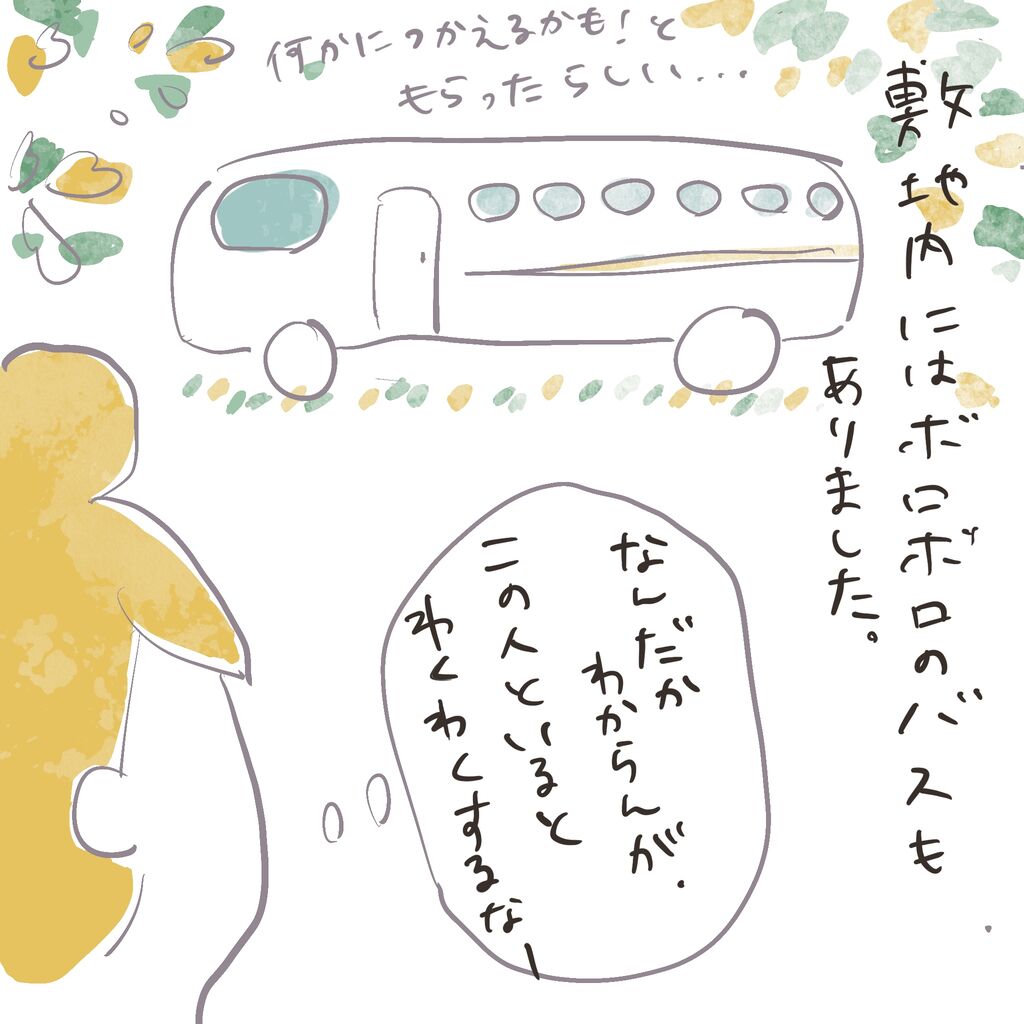 敷地内にはボロボロのバスも
ありました。
何かにつかえるかも!と
もらったらしい...
なんだか
わからんが.
この人といると
わくわくするなー